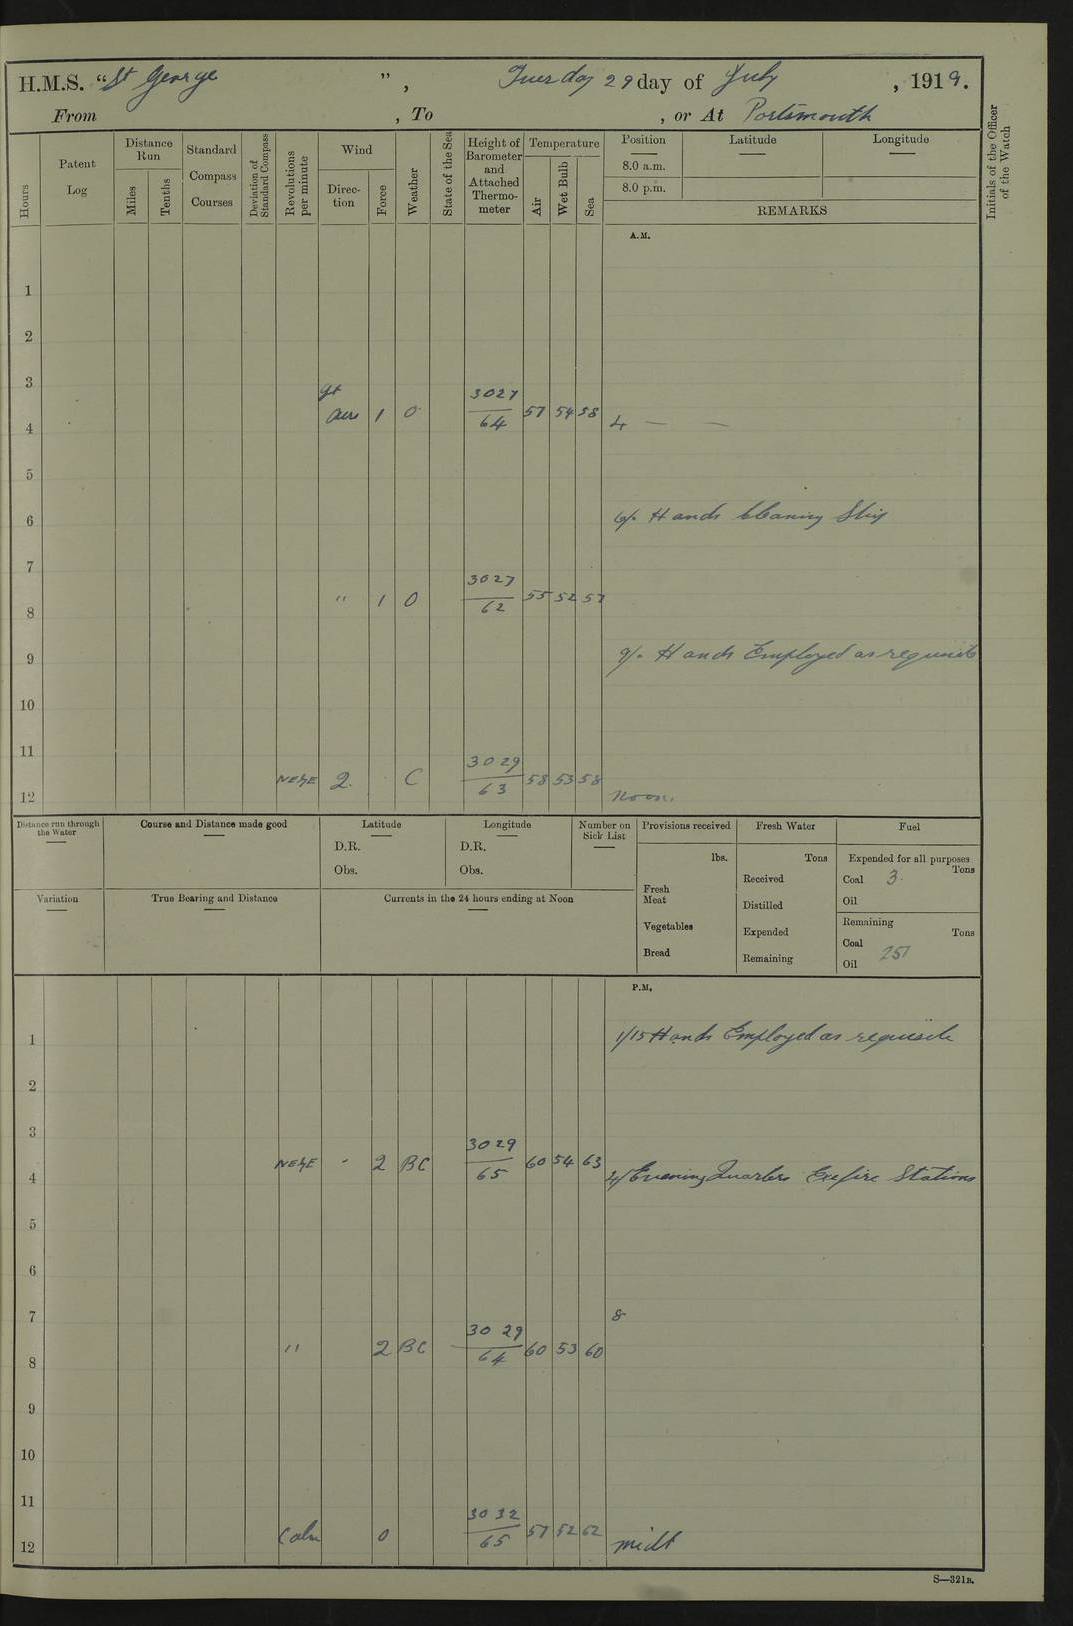 H.M.S. "St George", Tuesday 29 day of July, 1919.
From , To , or At Portsmouth
Hours
Patent Log
Distance Run
Miles
Tenths
Standard Compass Courses
Deviation of Standard Compass
Revolutions per minute
Wind
Direction
Force
Weather
State of the Sea
Height of Barometer and Attached Thermometer
Temperature
Air
Wet Bulb
Sea
Position
Latitude
Longitude
8.0 a.m.
8.0 p.m.
REMARKS
Initials of the Officer of the Watch
A.M.
1
2
3
4 airs 1 O 3027/64 57 54 58 4 — —
5
6 6/. Hands Cleaning Ship
7
8 " 1 O 3027/62 55 52 57
9 9/. Hands Employed as requisite
10
11
12 2 C 3029/63 58 53 58 Noon.
Distance run through the Water
Course and Distance made good
Latitude
D.R.
Obs.
Longitude
D.R.
Obs.
Number on Sick List
Provisions received
lbs.
Fresh Meat
Vegetables
Bread
Fresh Water
Tons
Received
Distilled
Expended
Remaining
Fuel
Expended for all purposes
Tons
Coal 3.
Oil
Remaining
Tons
Coal 257
Oil
Variation
True Bearing and Distance
Currents in the 24 hours ending at Noon
P.M.
1 1/15 Hands Employed as requisite
2
3
4 2 BC 3029/65 60 54 63 4/ Evening Quarters Exefire Stations
5
6
7 8
8 " 2 BC 30 29/64 60 53 60
9
10
11
12 Calm 0 30 32/65 57 52 62 midt
S—321B.